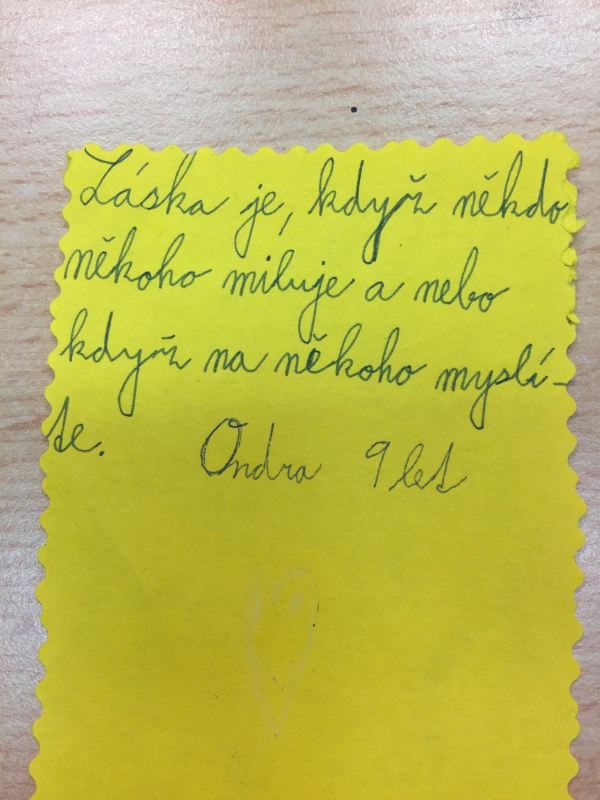 Láska je, když někdo
někoho miluje a nebo
když na někoho myslí-
te.    Ondra 9 let